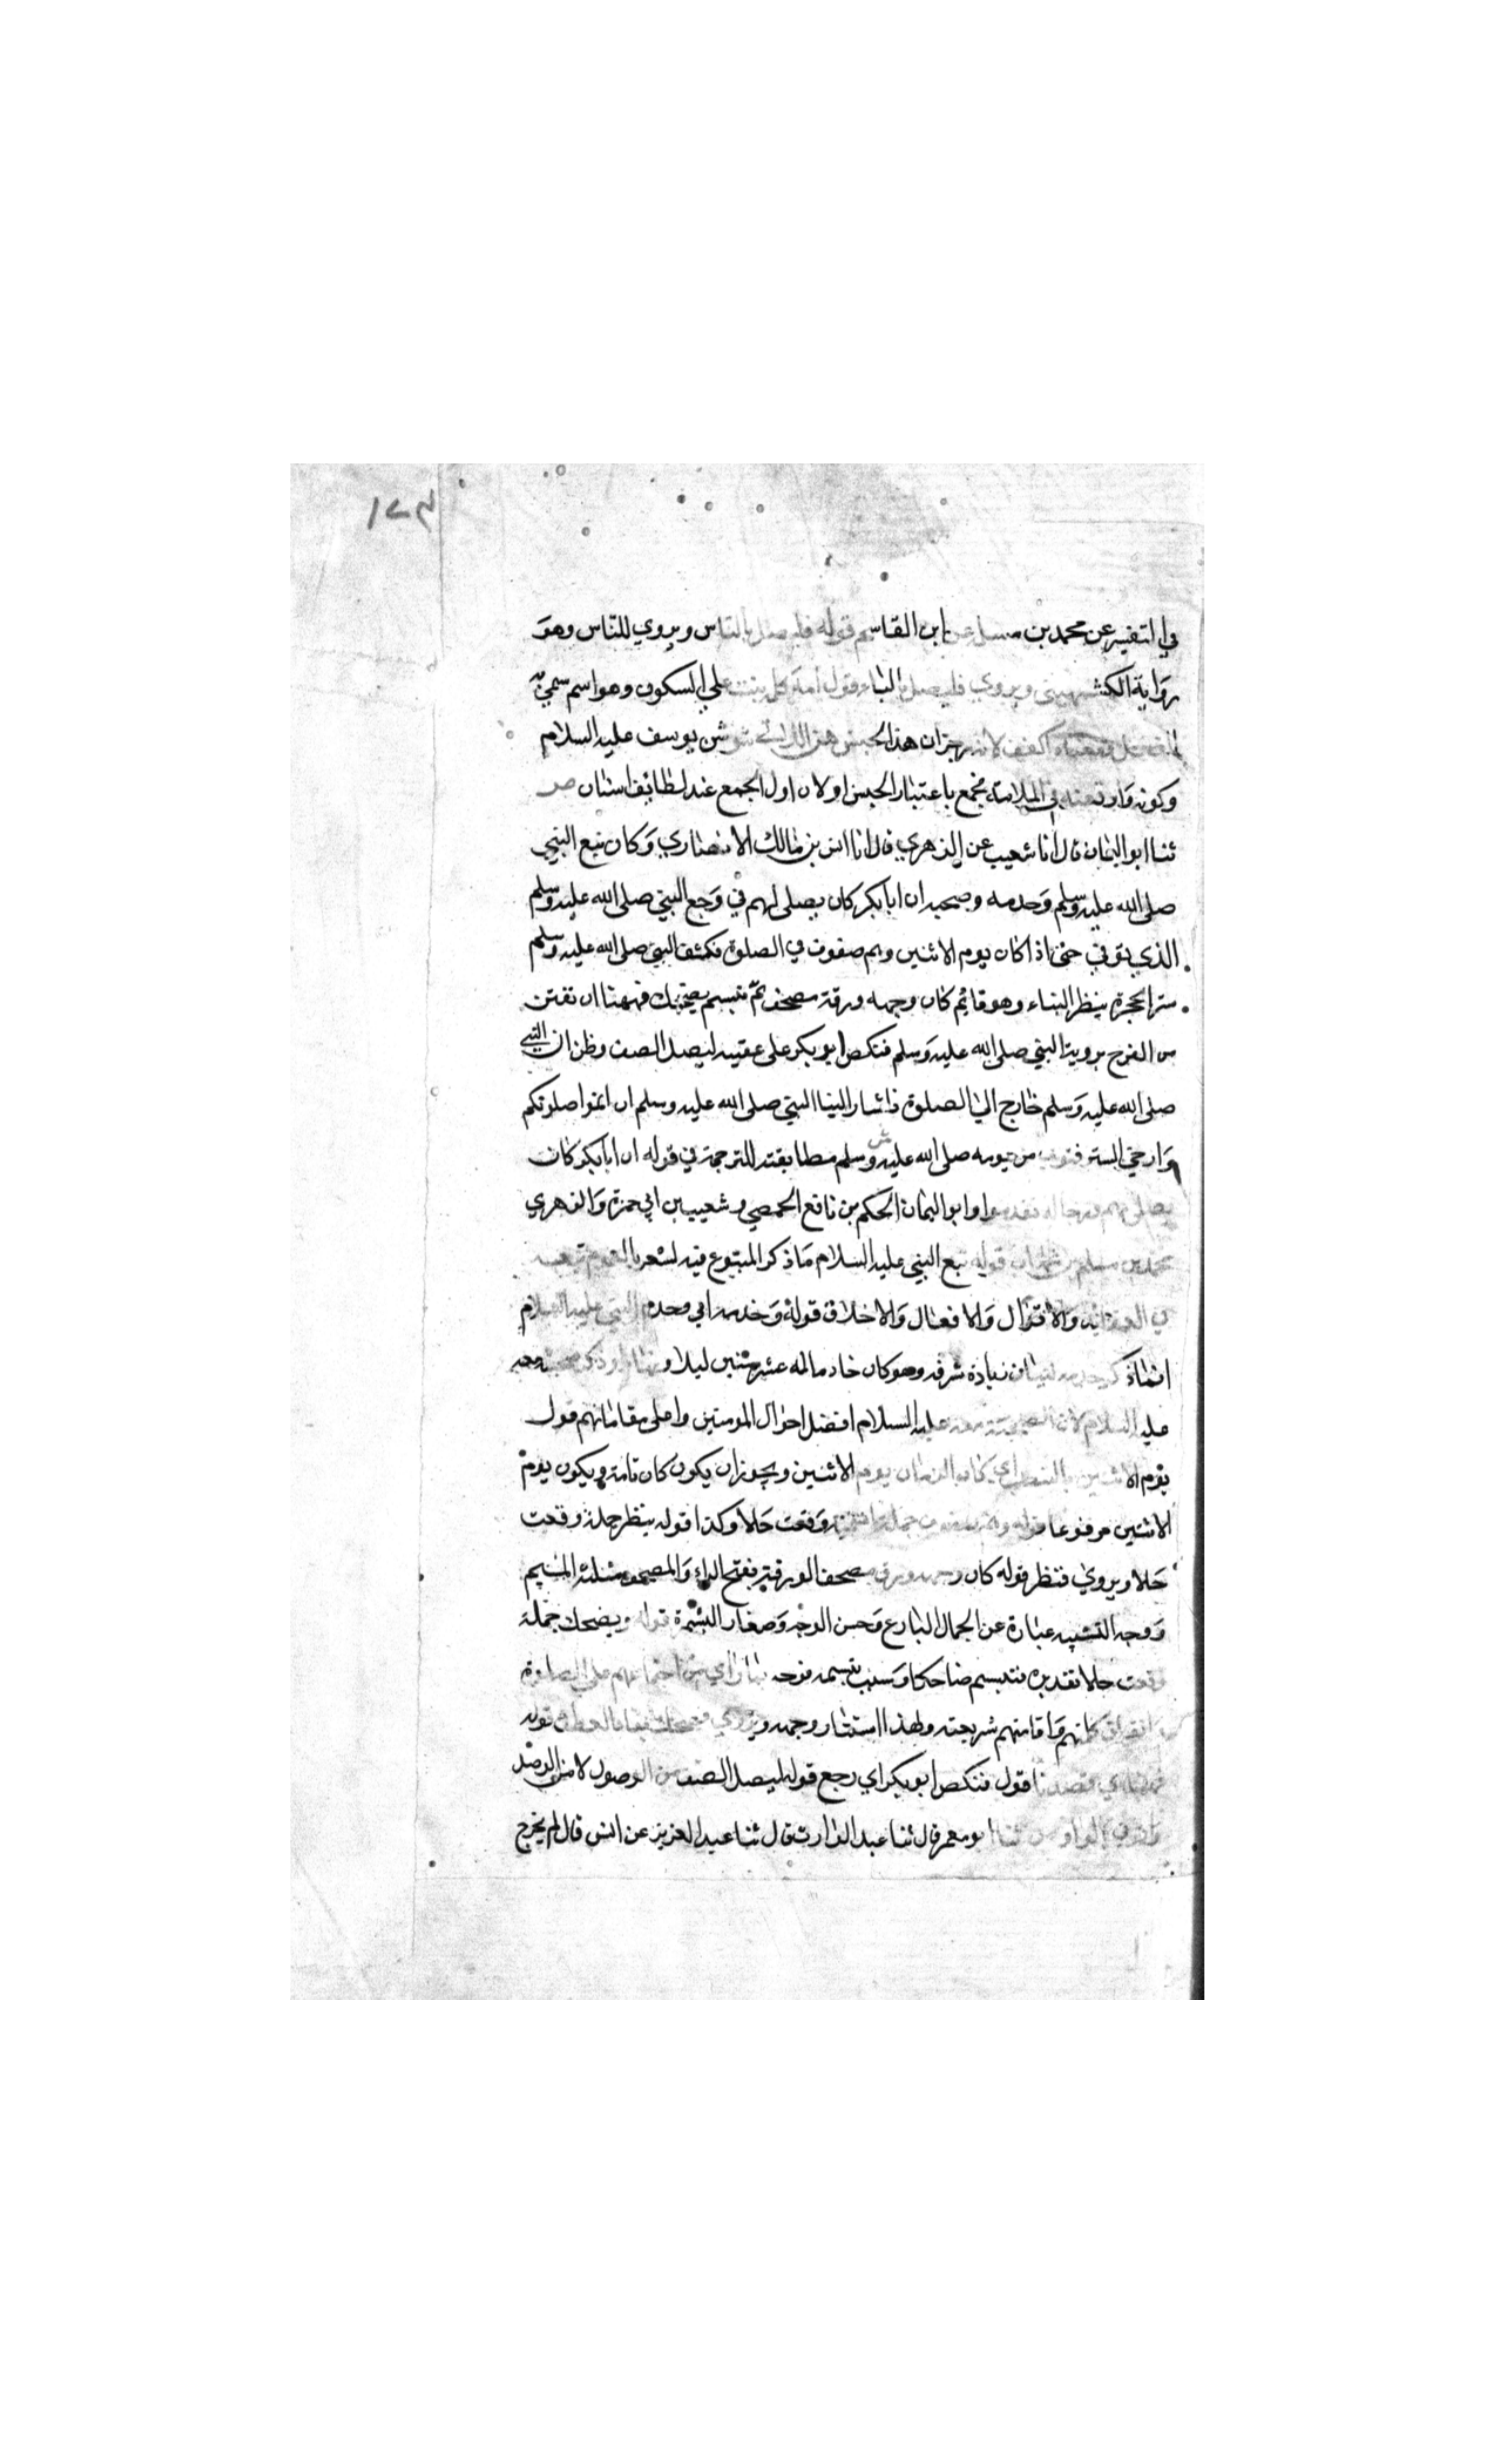 ١٧٣
في التفسير عن محمد بن مسلمة عن ابن القاسم قوله فليصل بالناس ويروي للناس وهو
رواية الكشميهني ويروي فليصل بالباء قوله مه كلمة بنيت علي السكون وهو اسم سمي به
الفعل ومعناه اكفف لانه زجر ان هذا الجنس هن اللائي شوشن يوسف عليه السلام
وكونه في الملامة فجمع باعتبار الجنس اولان اول الجمع عند لطائف اسنان ص
ثنا ابو اليمان قال انا شعيب عن الزهري قال انا انس بن مالك الانصاري وكان تبع النبي
صلى الله عليه وسلم وخدمه وصحبه ان ابا بكر كان يصلي لهم في وجع النبي صلى الله عليه وسلم
الذي توفي حتى اذا كان يوم الاثنين وهم صفوف في الصلوة فكشف النبي صلى الله عليه وسلم
ستر الحجرة ينظر الينا وهو قائم كان وجهه ورقة مصحف ثم تبسم يضحك فهممنا ان نفتتن
من الفرح بروية النبي صلى الله عليه وسلم فنكص ابو بكر على عقبيه ليصل الصف وظن ان النبي
صلى الله عليه وسلم خارج الي الصلوة فاشار الينا النبي صلى الله عليه وسلم ان اتموا صلوتكم
وارخي الستر فتوفي من يومه صلى الله عليه وسلم ش مطابقته للترجمة في قوله ان ابا بكر كان
يصلي لهم ورجاله تقدموا وابو اليمان الحكم بن نافع الحمصي وشعيب بن ابي حمزة والزهري
محمد بن مسلم بن شهاب قوله تبع النبي عليه السلام ما ذكر المتبوع فيه لشعر بالعموم تبعه
في العقائد والاقوال والافعال والاخلاق قوله وخدمه اي وخدم النبي عليه السلام
انما ذكر خدمه لبيان زيادة شرفه وهو كان خادما له عشر سنين ليلا ونهارا وذكر صحبته معه
عليه السلام لان الصحبة معه عليه السلام افضل احوال المومنين واعلى مقاماتهم قول
يوم الاثنين بالنصب اي كان الزمان يوم الاثنين ويجوز ان يكون كان تامة ويكون يوم
الاثنين مرفوعا قوله وهم صفوف جملة اسمية وقعت حالا وكذا قوله ينظر جملة وقعت
حالا ويروي فنظر قوله كان وجهه ورقة مصحف الورقة بفتح الراء والمصحف مثلثة الميم
ووجه التشبيه عبارة عن الجمال البارع وحسن الوجه وصفاء البشرة قوله ويضحك جملة
وقعت حالا تقديره فتبسم ضاحكا وسبب تبسمه فرحه بما راي من اجتماعهم على الصلوة
واتفاق كلمتهم واقامتهم شريعته ولهذا استنار وجهه ويروي فضحك بفاء العطف قوله
فهممنا اي قصدنا قول فنكص ابو بكر اي رجع قوله ليصل الصف من الوصول لا من الوصل
ثنا ابو معمر قال ثنا عبد الوارث قال ثنا عبد العزيز عن انس قال لم يخرج